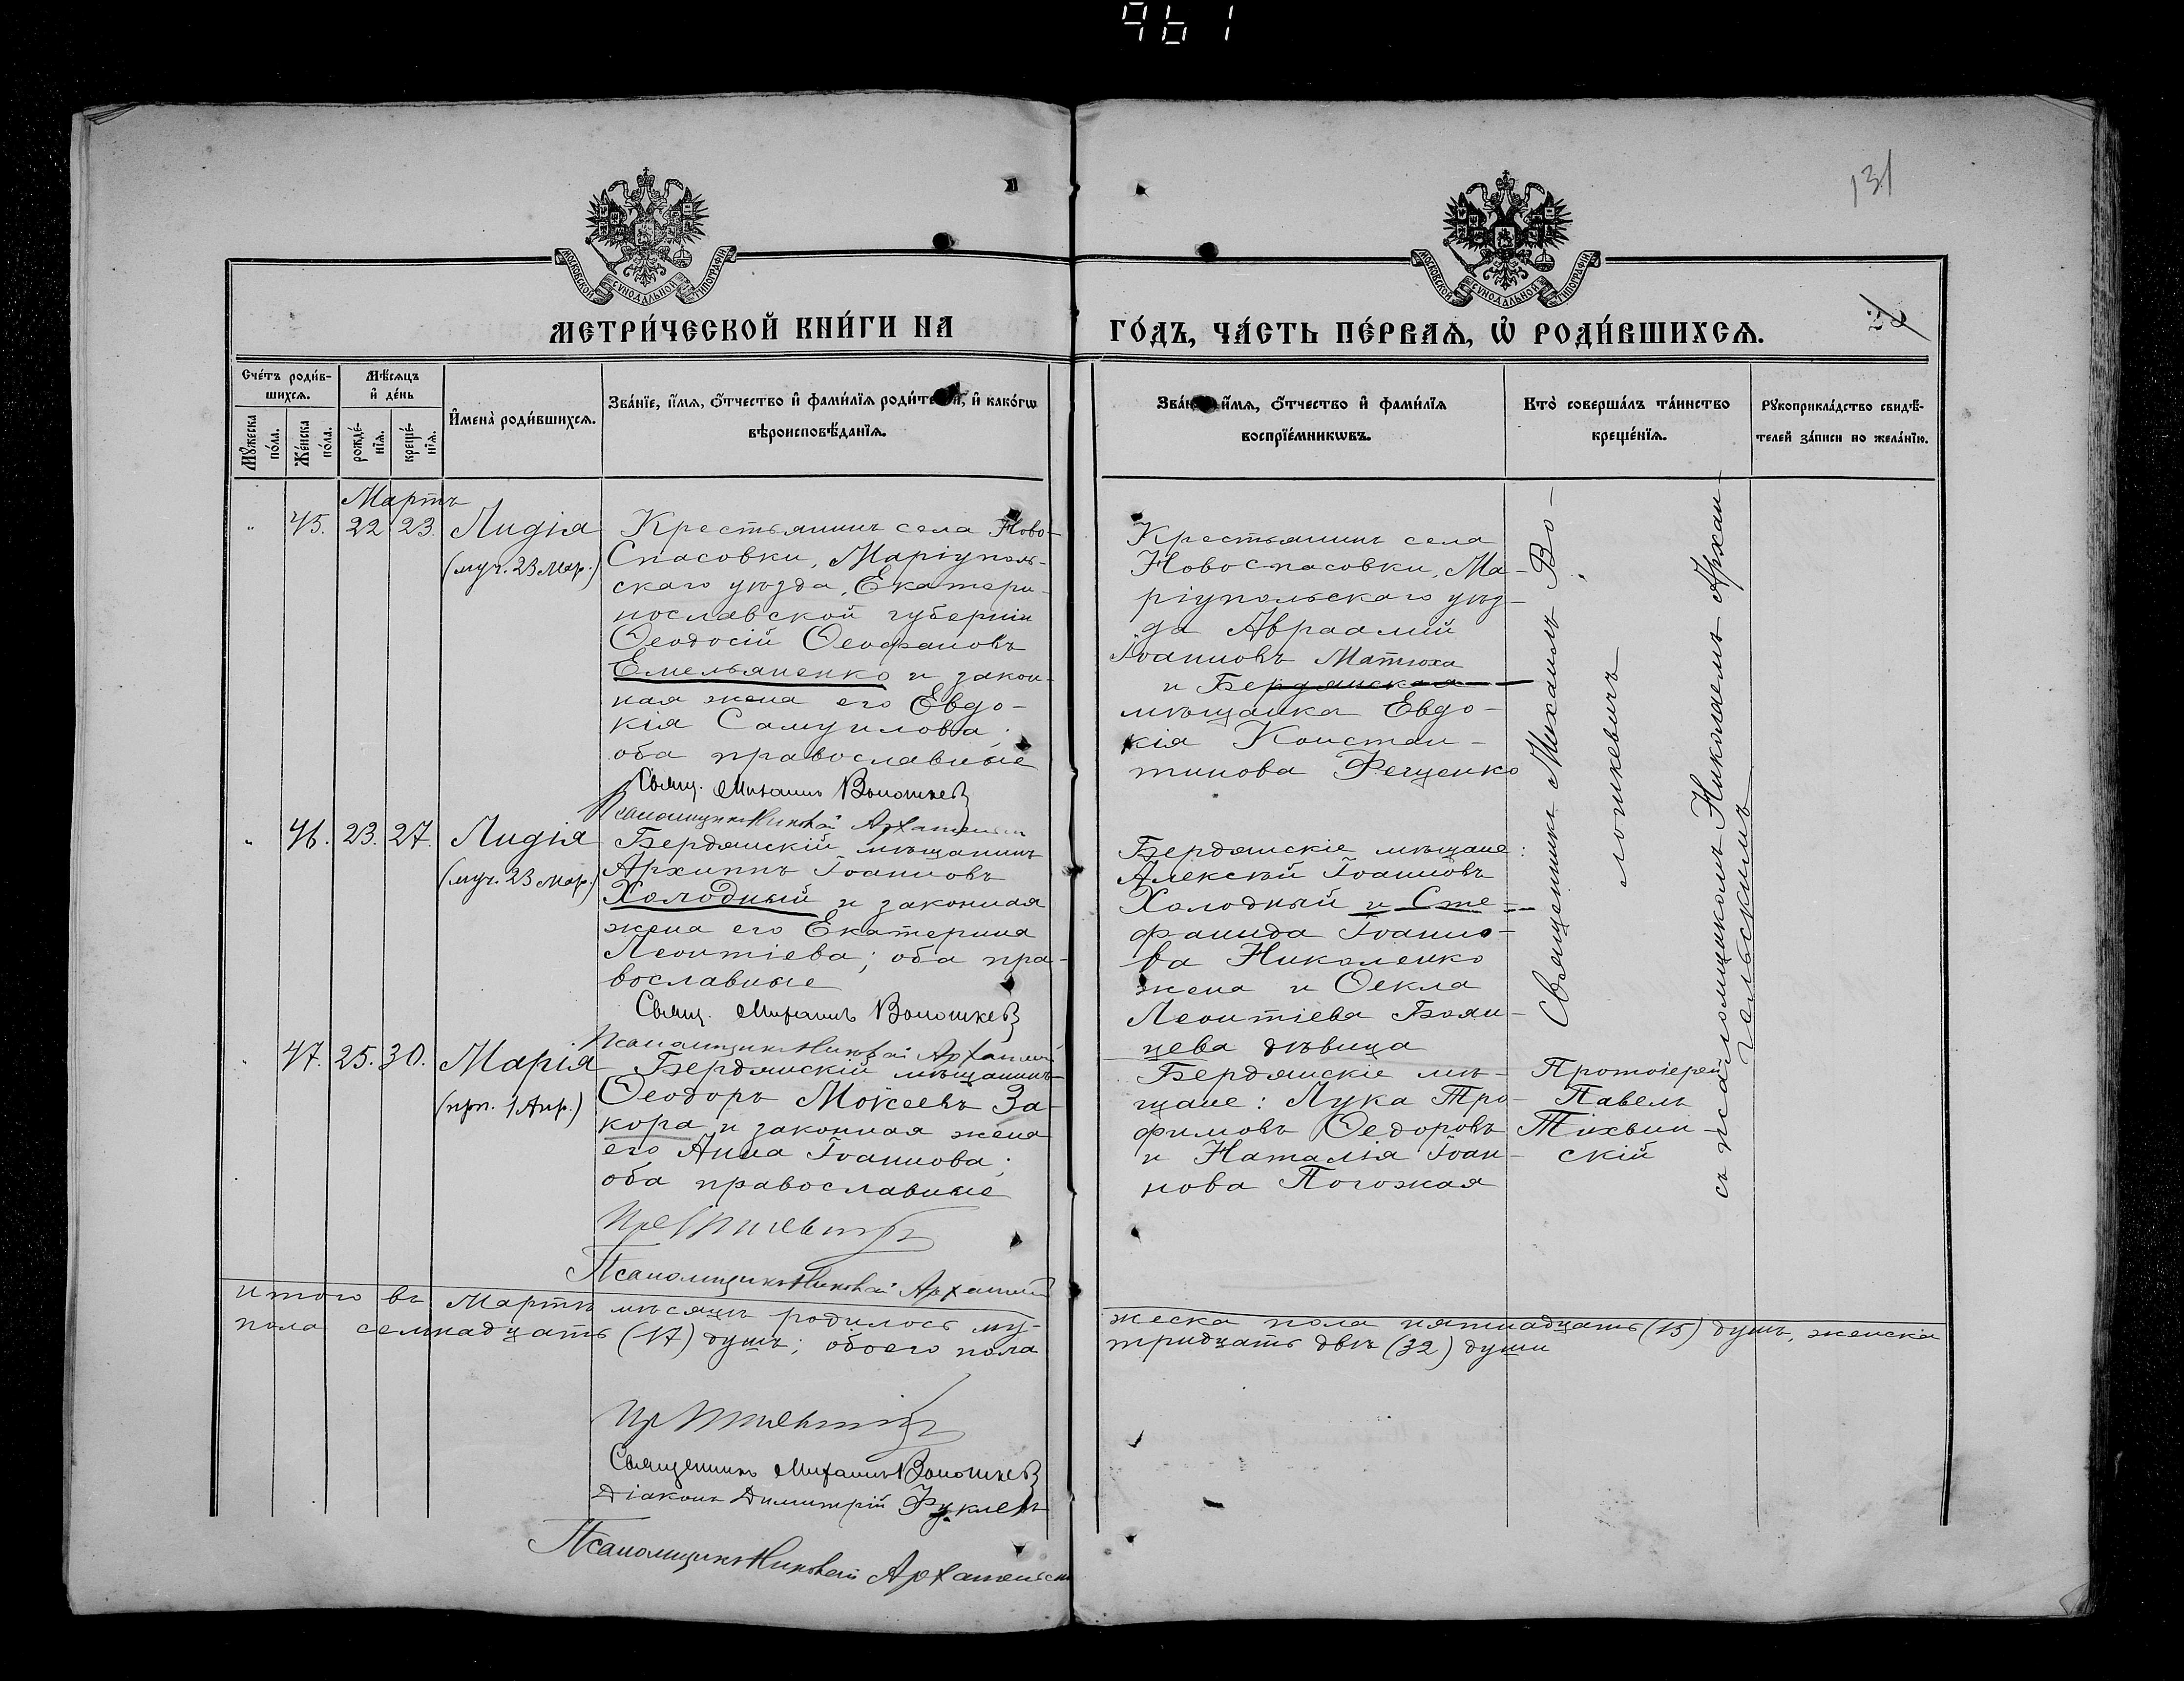 961
131
28
МОСКОВСКОЙ СУНОДАЛЬНОЙ ТИПОГРАФІИ
МОСКОВСКОЙ СУНОДАЛЬНОЙ ТИПОГРАФІИ
МЕТРИ́ЧЕСКОЙ КНИ́ГИ НА
ГО́ДЪ, ЧА́СТЬ ПЕ́РВАѦ, Ѽ РОДИ́ВШИХСѦ.
Сче́тъ роди́в-
шихсѧ.
Мꙋ́жеска
по́ла.
Же́нска
по́ла.
Мѣ́сѧцъ
и҆ де́нь
рожде́-
нїѧ.
креще́-
нїѧ.
И҆мена̀ роди́вшихсѧ.
Зва́нїе, и҆́мѧ, ѻ҆́тчество и҆ фами́лїѧ роди́телей, и҆ како́гѡ
вѣроисповѣ́данїѧ.
Зва́нїе, и҆́мѧ, ѻ҆́тчество и҆ фами́лїѧ
воспрїе́мникѡвъ.
Кто̀ соверша́лъ та́инство
креще́нїѧ.
Рꙋкоприкла́дство свидѣ́-
телей за́писи по жела́нїю.
Мартъ
" 45. 22 23. Лидія
(муч. 23 Мар.)
Крестьянинъ села Ново-
Спасовки, Маріуполь-
скаго уѣзда, Екатери-
нославской губерніи
Ѳеодосій Ѳеофановъ
Емельяненко и закон-
ная жена его Евдо-
кія Самуилова;
оба православные
Свящ. Михаилъ Волошкев
Псаломщикъ Николай Архангельскій
Крестьянинъ села
Новоспасовки, Ма-
ріупольскаго уѣз-
да Авраамій
Іоанновъ Матюха
и Бердянская
мѣщанка Евдо-
кія Констан-
тинова Фещенко
Священникъ Михаилъ Во-
лошкевичъ
съ псаломщикомъ Николаемъ Архан-
гельскимъ
" 46. 23. 27. Лидія
(муч. 23 Мар.)
Бердянскій мѣщанинъ
Архиппъ Іоанновъ
Холодный и законная
жена его Екатерина
Леонтіева; оба пра-
вославные
Свящ. Михаилъ Волошкев
Псаломщикъ Николай Архангельскій
Бердянскіе мѣщане:
Алексѣй Іоанновъ
Холодный и Сте-
фанида Іоанно-
ва Николенко
жена и Ѳекла
Леонтіева Боян-
цева дѣвица
" 47. 25. 30. Марія
(прп. 1 Апр.)
Бердянскій мѣщанинъ
Ѳеодоръ Моисеевъ За-
кора и законная жена
его Анна Іоаннова;
оба православные
Псаломщикъ Николай Архангельскій
Бердянскіе мѣ-
щане: Лука Тро-
фимовъ Ѳедоровъ
и Наталія Іоан-
нова Погожая
Протоіерей
Павелъ
Тихвин-
скій
Итого въ Мартѣ мѣсяцѣ родилось му-
жеска пола пятнадцать (15) душъ, женска
пола семнадцать (17) душъ; обоего пола
тридцать двѣ (32) души
Священникъ Михаилъ Волошкев
Діаконъ Димитрій Фуклевъ
Псаломщикъ Николай Архангельскій